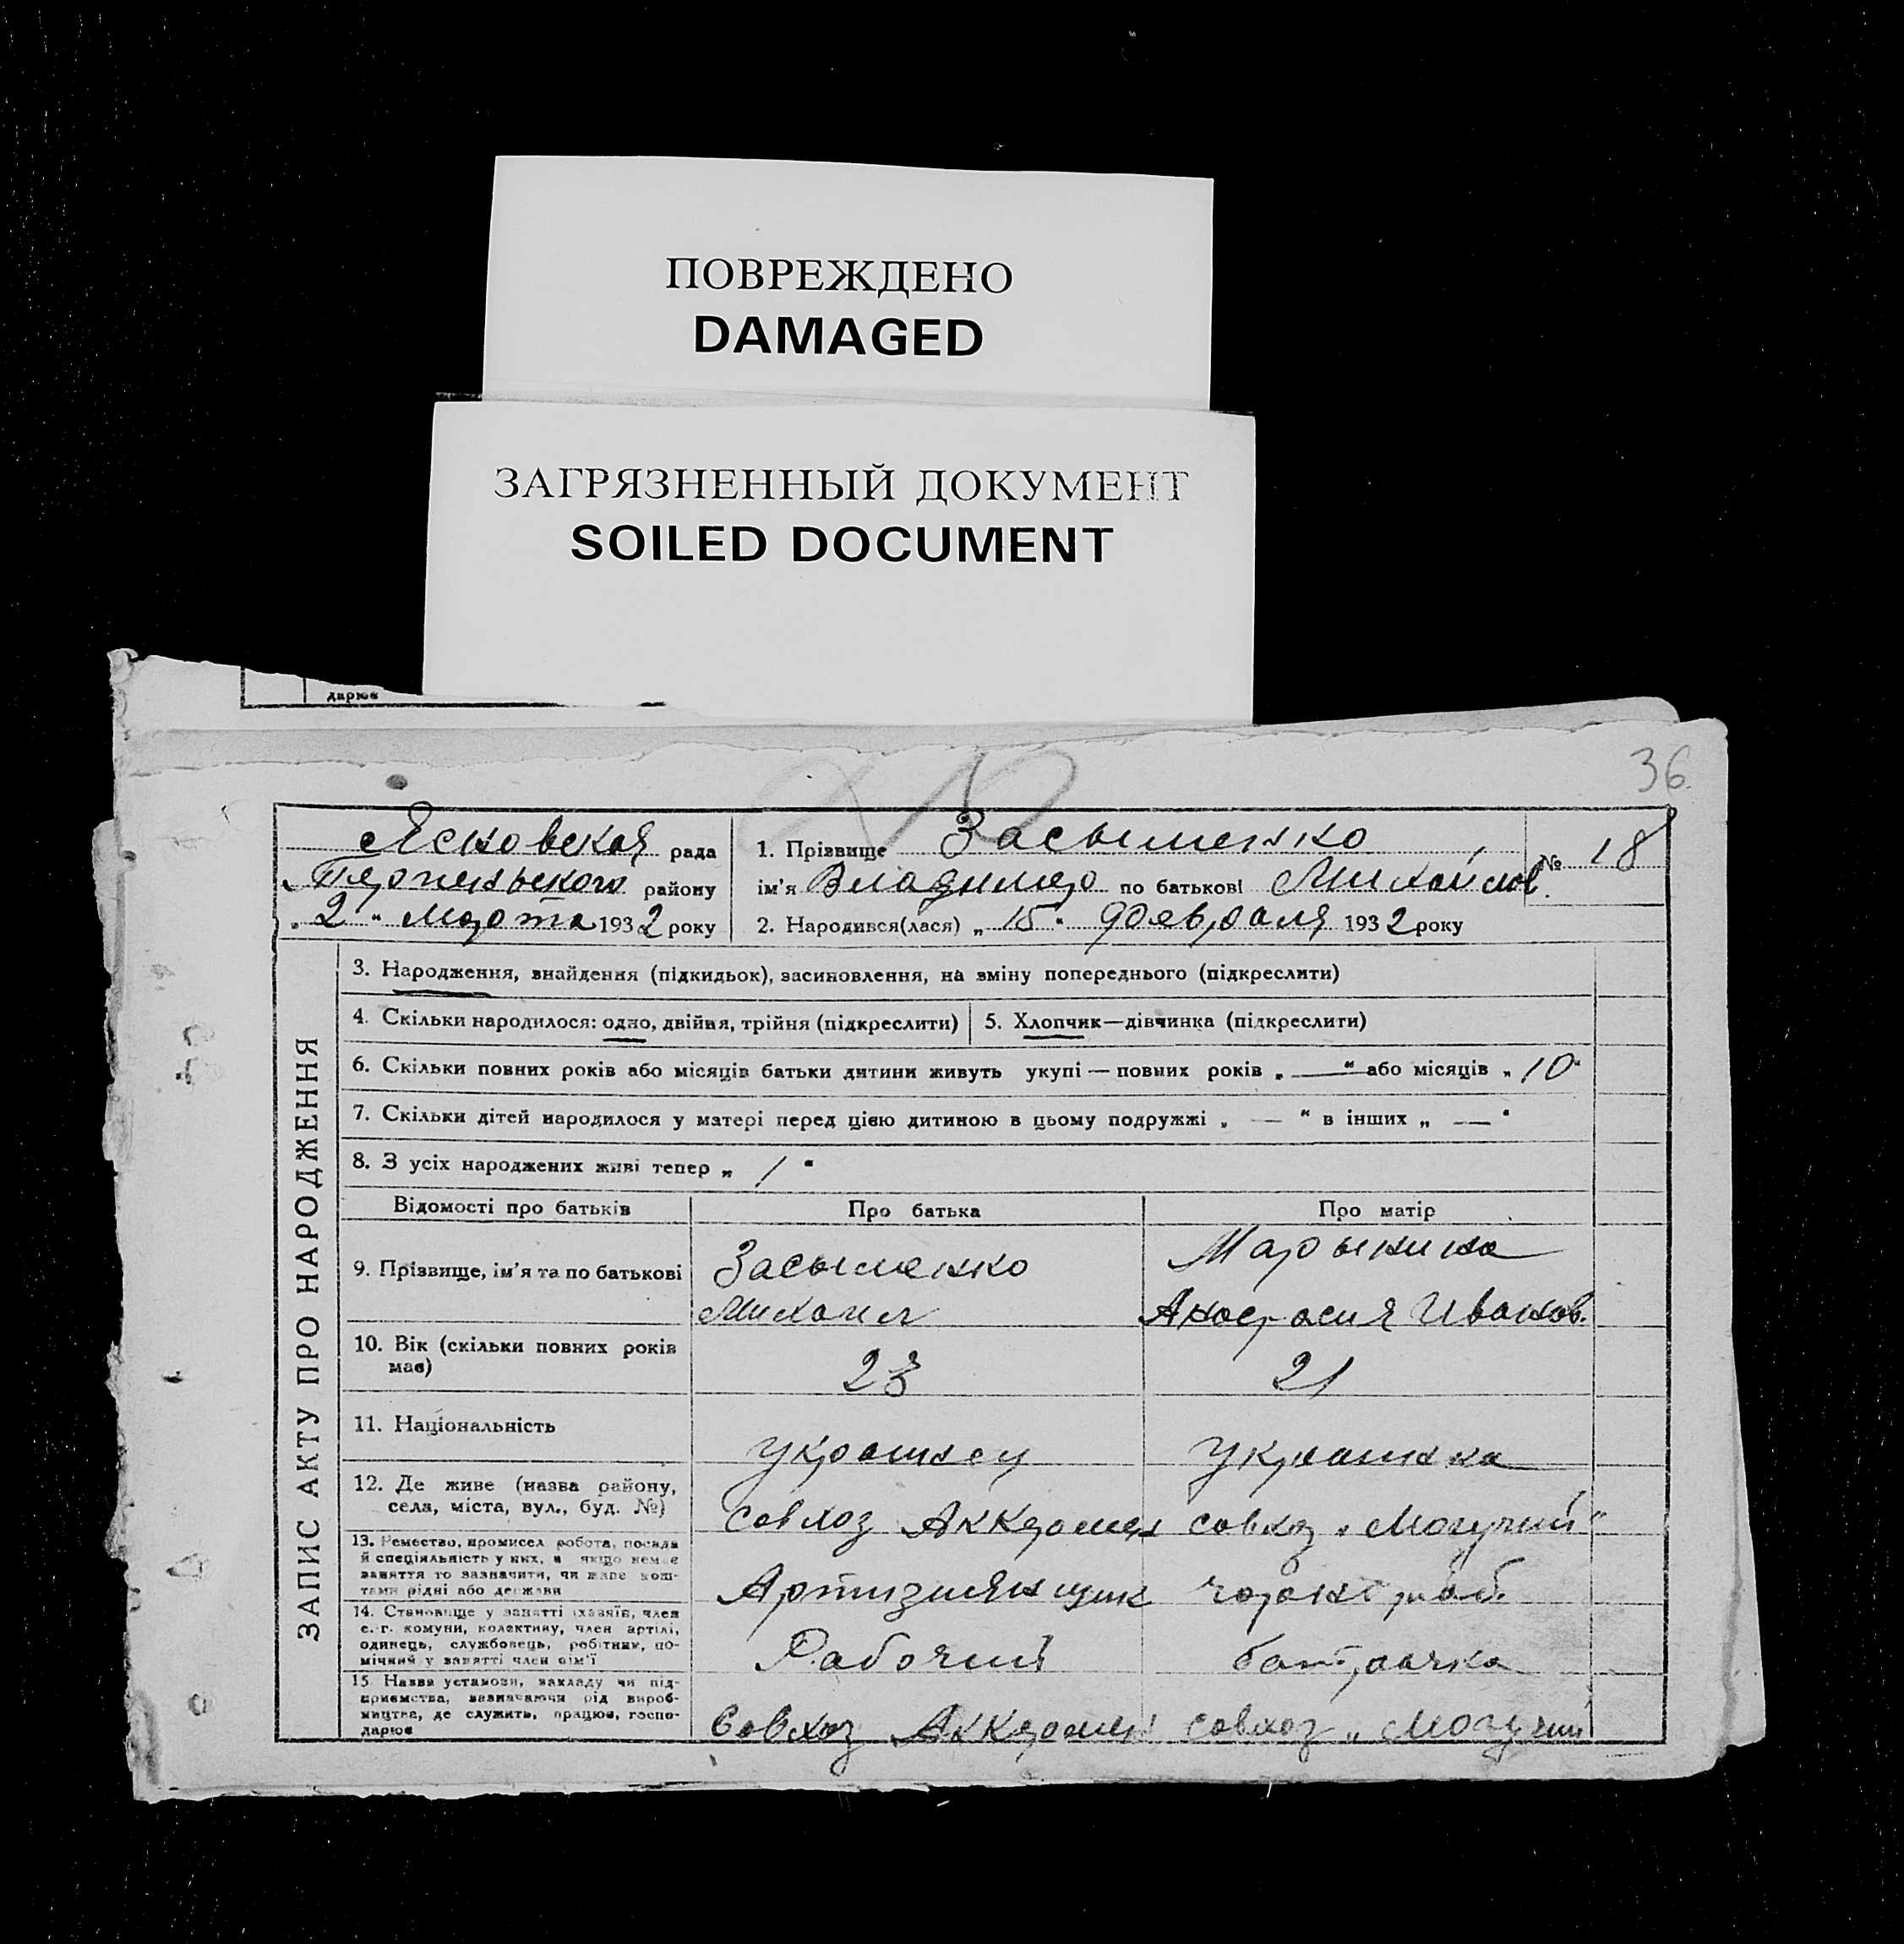 ПОВРЕЖДЕНО
DAMAGED
ЗАГРЯЗНЕННЫЙ ДОКУМЕНТ
SOILED DOCUMENT
дарює
36
рада
району
„2“ Марта 1932 року
1. Прізвище Засыменко
№ 18
ім'я Владимир по батькові Михайлов.
2. Народився(лася) „15“ февраля 1932 року
ЗАПИС АКТУ ПРО НАРОДЖЕННЯ
3. Народження, знайдення (підкидьок), засиновлення, на зміну попереднього (підкреслити)
4. Скільки народилося: одно, двійня, трійня (підкреслити)
5. Хлопчик—дівчинка (підкреслити)
6. Скільки повних років або місяців батьки дитини живуть укупі — повних років „—“ або місяців „10“
7. Скільки дітей народилося у матері перед цією дитиною в цьому подружжі „—“ в інших „—“
8. З усіх народжених живі тепер „1“
Відомості про батьків
Про батька
Про матір
9. Прізвище, ім'я та по батькові
Засыменко
Михаил
Марынина
Анастасия Иванов.
10. Вік (скільки повних років
має)
23
21
11. Національність
Украинец
Украинка
12. Де живе (назва району,
села, міста, вул., буд. №)
совхоз Аккермен
совхоз „Могучий“
13. Ремество, промисел робота, посада
й спеціяльність у них, а якщо немає
заняття то зазначити, чи живе кош-
тами рідні або держави
раб.
14. Становище у занятті (хазяїн, член
с.-г. комуни, колективу, член артілі,
одинець, службовець, робітник, по-
мічний у занятті член сім'ї
Рабочий
батрачка
15. Назва установи, закладу чи під-
приємства, зазначаючи рід вироб-
ництва, де служить, працює, госпо-
дарює
Совхоз Аккермен
совхоз „Могучий